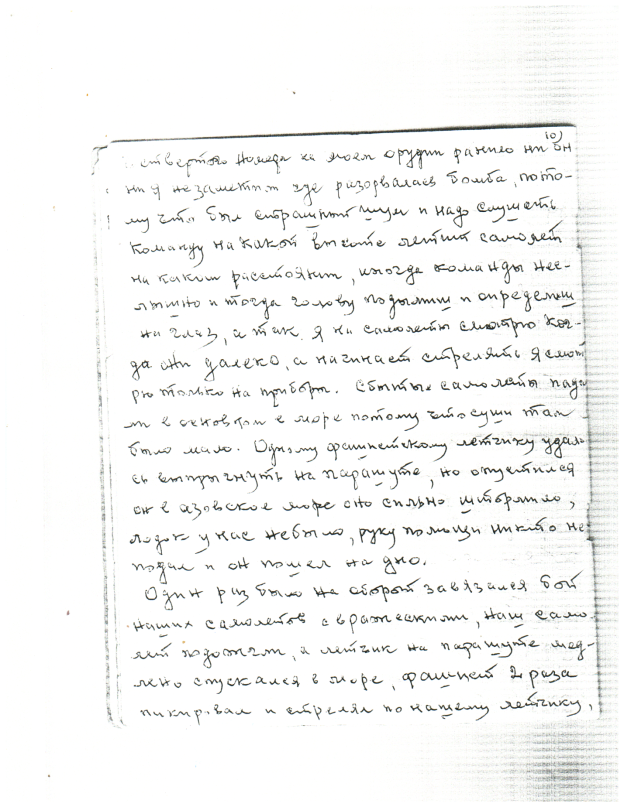 10)
четвертого номера на моем орудии ранило ни он
ни я незаметили где разорвалась бомба, пото-
му что был страшный шум и надо слушать
команду на какой высоте летит самолет
на каком растоянии, иногда команды нес-
лышно и тогда голову подымиш и определиш
на глаз, а так я на самолеты смотрю ког-
да они далеко, а начинает стрелять я смот
рю только на приборы. Сбитые самолеты пада
ли в основном в море потому что суши там
было мало. Одному фашисткому летчику удало
сь выпрыгнуть на парашуте, но опустился
он в азовское море оно сильно штормило,
лодок у нас небыло, руку помощи никто не
подал и он пошел на дно.
Один раз было на оборот завязался бой
наших самолетов с вражескими, наш само-
лет подожгли, а летчик на парашуте мед-
лено спускался в море, фашист 2 раза
пикировал и стрелял по нашему летчику,